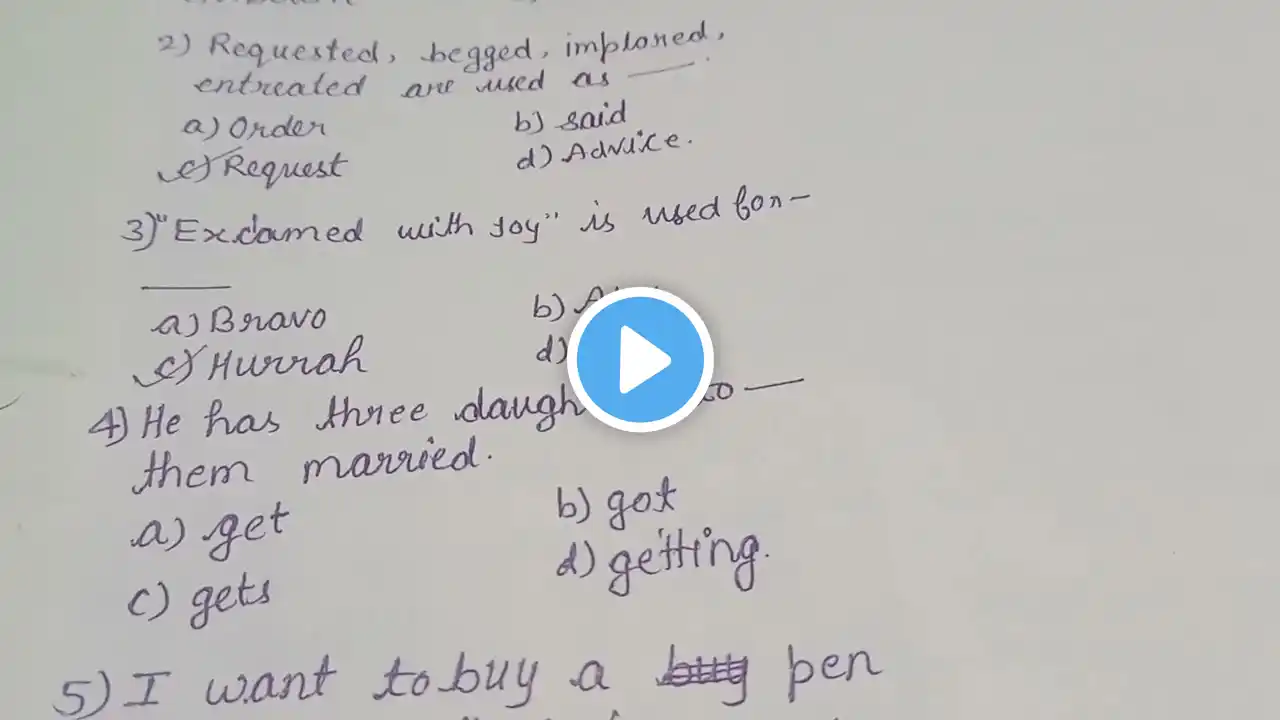 2) Requested, begged, implored,
entreated are used as —.
a) Order b) said
c) Request d) Advice.
3) "Exclamed with Joy" is used for—
a) Bravo b)
c) Hurrah d)
4) He has three to —
them married.
a) get b) got
c) gets d) getting.
5) I want to buy a pen